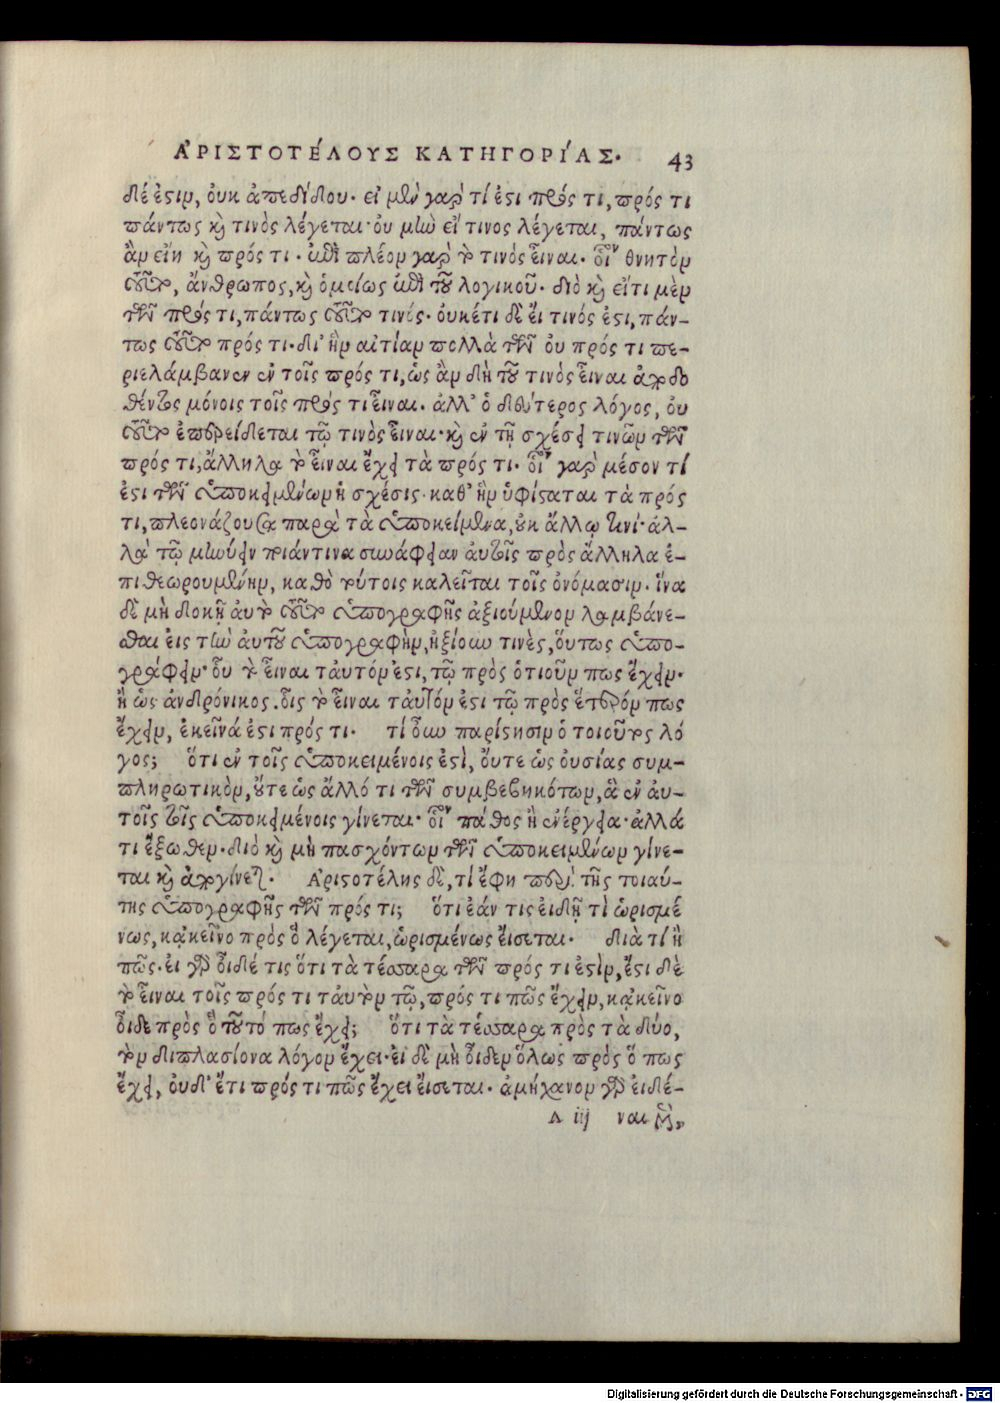 ἈΡΙΣΤΟΤΈΛΟΥΣ ΚΑΤΗΓΟΡΊΑΣ. 43
δέ ἐστιν, οὐκ ἀπεδίδου. εἰ μὲν γάρ τί ἐστι πρός τι, πρός τι
πάντως καὶ τινὸς λέγεται· οὐ μὴν εἴ τινος λέγεται, πάντως
ἂν εἴη καὶ πρός τι. ἐπὶ πλέον γὰρ τὸ τινὸς εἶναι. οἷον θνητὸν
ζῶον, ἄνθρωπος, καὶ ὁμοίως ἐπὶ τοῦ λογικοῦ. διὸ καὶ εἴ τι μὲν
τῶν πρός τι, πάντως τινός. οὐκέτι δὲ εἴ τινός ἐστι, πάν-
τως πρός τι. δι' ἣν αἰτίαν πολλὰ τῶν οὐ πρός τι πε-
ριελάμβανεν ἐν τοῖς πρός τι, ὡς ἂν δὴ τοῦ τινὸς εἶναι ἀποδο
θέντος μόνοις τοῖς πρός τι εἶναι. ἀλλ' ὁ δεύτερος λόγος, οὐ
ἐπερείδεται τῷ τινὸς εἶναι· καὶ ἐν τῇ σχέσει τινῶν τῶν
πρός τι, ἄλληλα τὸ εἶναι ἔχει τὰ πρός τι. οἷον γὰρ μέσον τί
ἐστι τῶν ὑποκειμένων ἡ σχέσις. καθ' ἣν ὑφίσταται τὰ πρός
τι, πλεονάζουσα παρὰ τὰ ὑποκείμενα, οὐκ ἄλλῳ τινί· ἀλ-
λὰ τῷ συνάφειαν αὐτοῖς πρὸς ἄλληλα ἐ-
πιθεωρουμένην, καθὸ τούτοις καλεῖται τοῖς ὀνόμασιν. ἵνα
δὲ μὴ δοκῇ αὐτὸ ὑπογραφῆς ἀξιούμενον λαμβάνε-
σθαι εἰς τὴν αὐτοῦ ὑπογραφὴν, ἠξίουν τινὲς, οὕτως ὑπο-
γράφειν· οὗ τὸ εἶναι ταὐτόν ἐστι, τῷ πρὸς ὁτιοῦν πως ἔχειν.
ἢ ὡς ἀνδρόνικος. οἷς τὸ εἶναι ταὐτόν ἐστι τῷ πρὸς ἕτερόν πως
ἔχειν, ἐκεῖνά ἐστι πρός τι. τί οὖν παρίστησιν ὁ τοιοῦτος λό
γος; ὅτι ἐν τοῖς ὑποκειμένοις ἐστὶ, οὔτε ὡς οὐσίας συμ-
πληρωτικὸν, οὔτε ὡς ἄλλό τι τῶν συμβεβηκότων, ἃ ἐν αὐ-
τοῖς τοῖς ὑποκειμένοις γίνεται. οἷον πάθος ἢ ἐνέργεια· ἀλλά
τι ἔξωθεν. διὸ καὶ μὴ πασχόντων τῶν ὑποκειμένων γίνε-
ται καὶ ἀπογίνεται. Ἀριστοτέλης δὲ, τί ἔφη περὶ τῆς τοιαύ-
της ὑπογραφῆς τῶν πρός τι; ὅτι ἐάν τις εἰδῇ τὶ ὡρισμέ
νως, κἀκεῖνο πρὸς ὃ λέγεται, ὡρισμένως εἴσεται. διὰ τί ἢ
πῶς· εἰ γὰρ οἶδέ τις ὅτι τὰ τέσσαρα τῶν πρός τι ἐστὶν, ἔστι δὲ
τὸ εἶναι τοῖς πρός τι ταὐτὸν τῷ, πρός τι πῶς ἔχειν, κἀκεῖνο
οἶδε πρὸς ὃ τοῦτό πως ἔχει; ὅτι τὰ τέσσαρα πρὸς τὰ δύο,
τὸν διπλασίονα λόγον ἔχει· εἰ δὲ μὴ οἶδεν ὅλως πρὸς ὅ πως
ἔχει, οὐδ' ἔτι πρός τι πῶς ἔχει εἴσεται. ἀμήχανον γὰρ εἰδέ-
Λ iij ναι
Digitalisierung gefördert durch die Deutsche Forschungsgemeinschaft · DFG